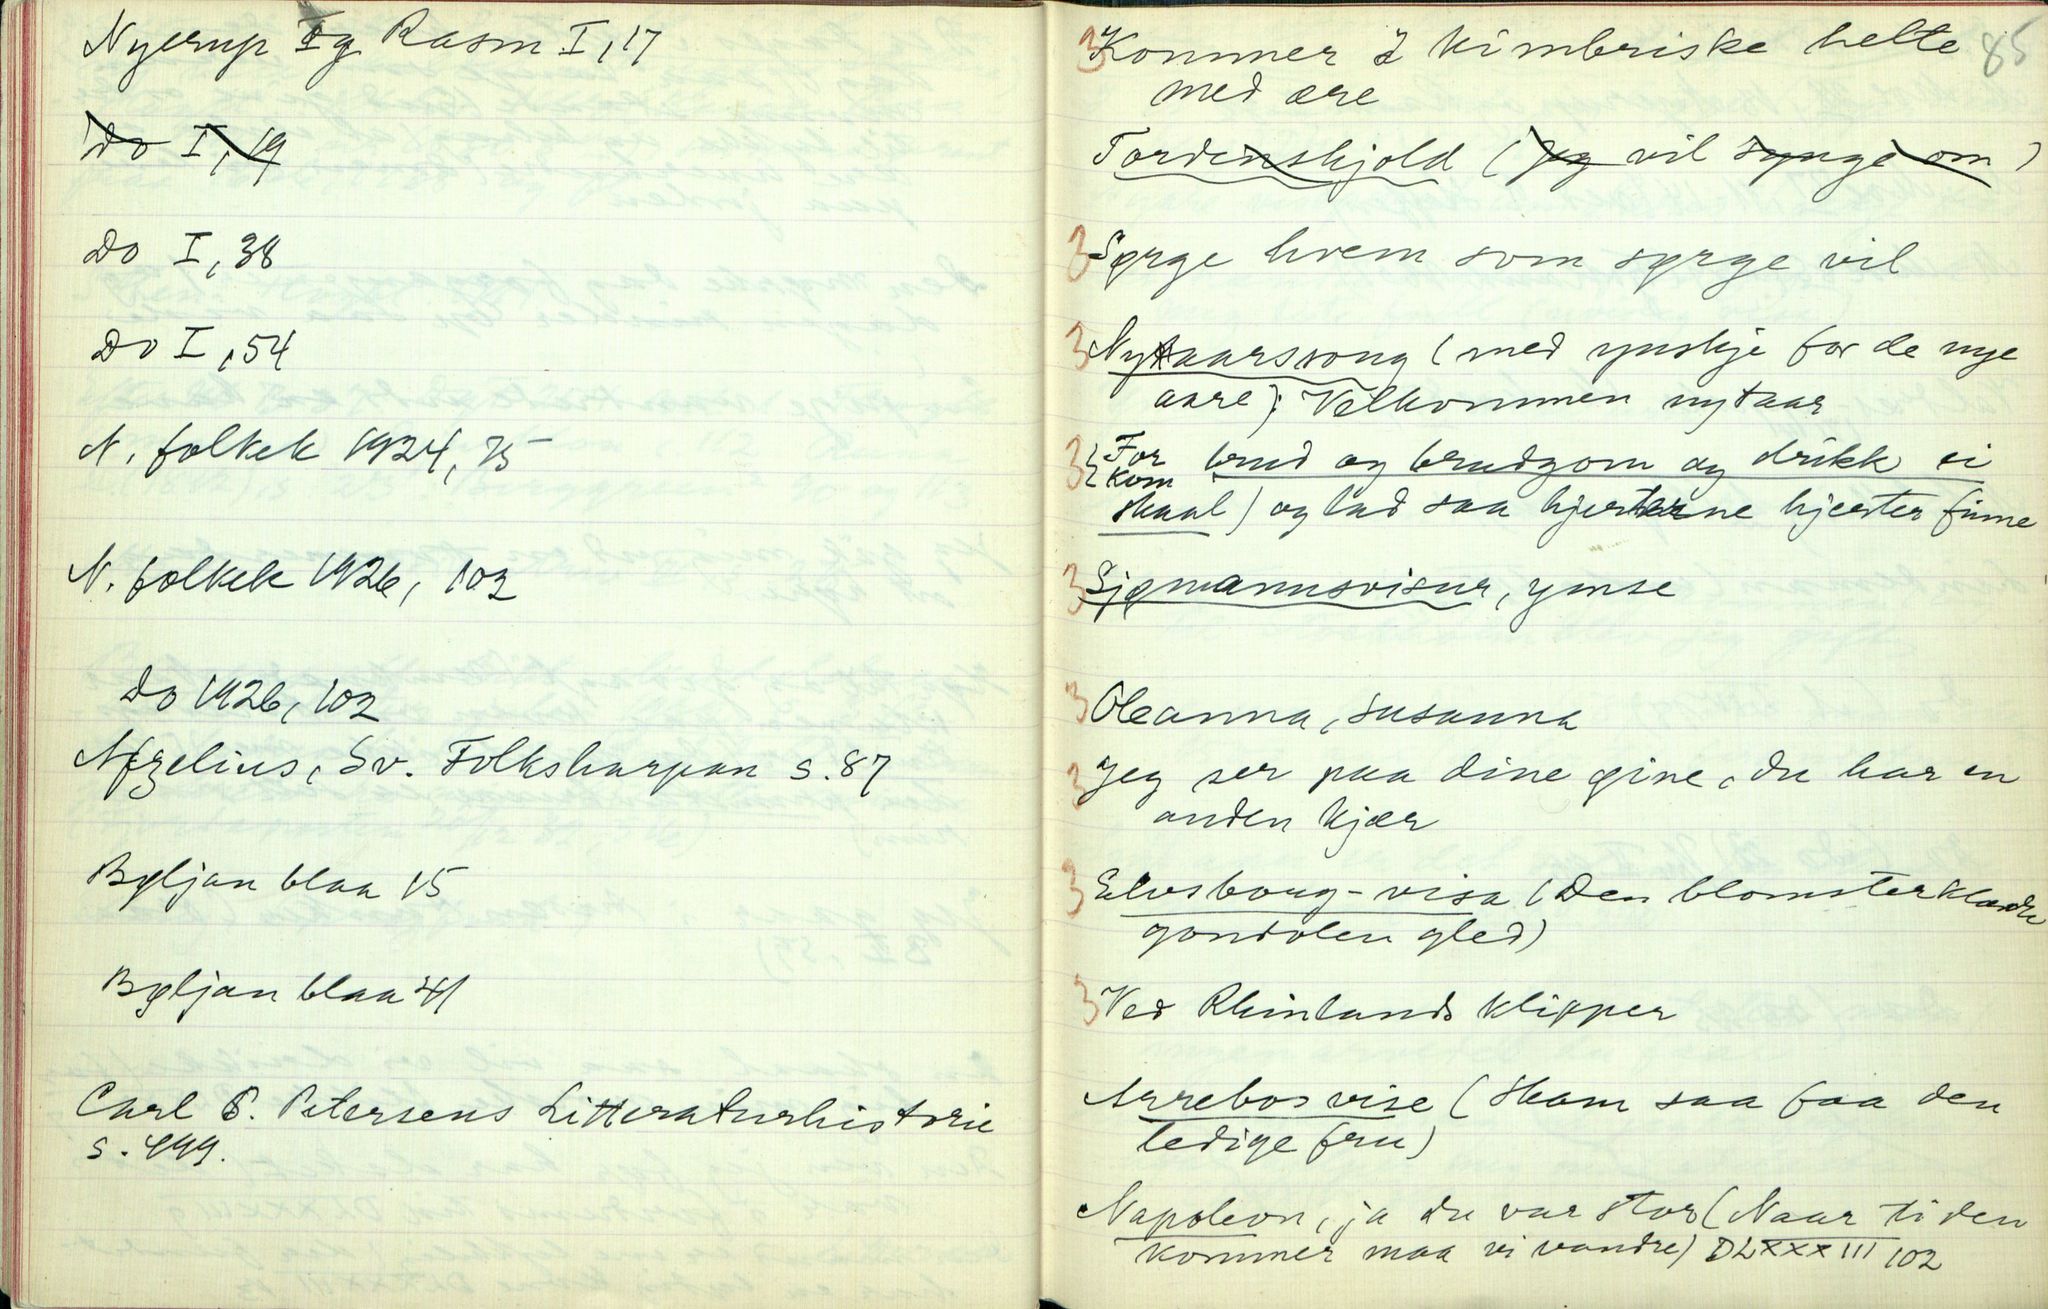 Nyerup og Rasm I, 17
Do I, 19
Do I, 38
Do I, 54
N. folkek 1924, 75
N. folkek 1926, 102
Do 1926, 102
Afzelius, Sv. Folksharpan s. 87
Bøljan blaa 15
Bøljan blaa 41
Carl S. Petersens Litteraturhistorie
s. 499.
85
3 Kommer I kimbriske helte
med ære
Tordenskjold (Jeg vil synge om)
3 Sørge hvem som sørge vil
3 Nytaarssong (med ynskje for de nye
aare): Velkommen nytaar
3 {For Kom brud og brudgom og drikk ei
skaal) og lad saa hjerterne hjerter finne
3 Sjømannsvisur, ymse
3 Oleanna, Susanna
3 Jeg ser paa dine øine, du har en
anden kjær
3 Elvsborg-visa (Den blomsterklædte
gondolen gled)
3 Ved Rhinlands klipper
Arrebos vise (Skam saa faa den
ledige fru)
Napoleon, ja du var stor (Naar tiden
kommer maa vi vandre) DLXXXIII 102